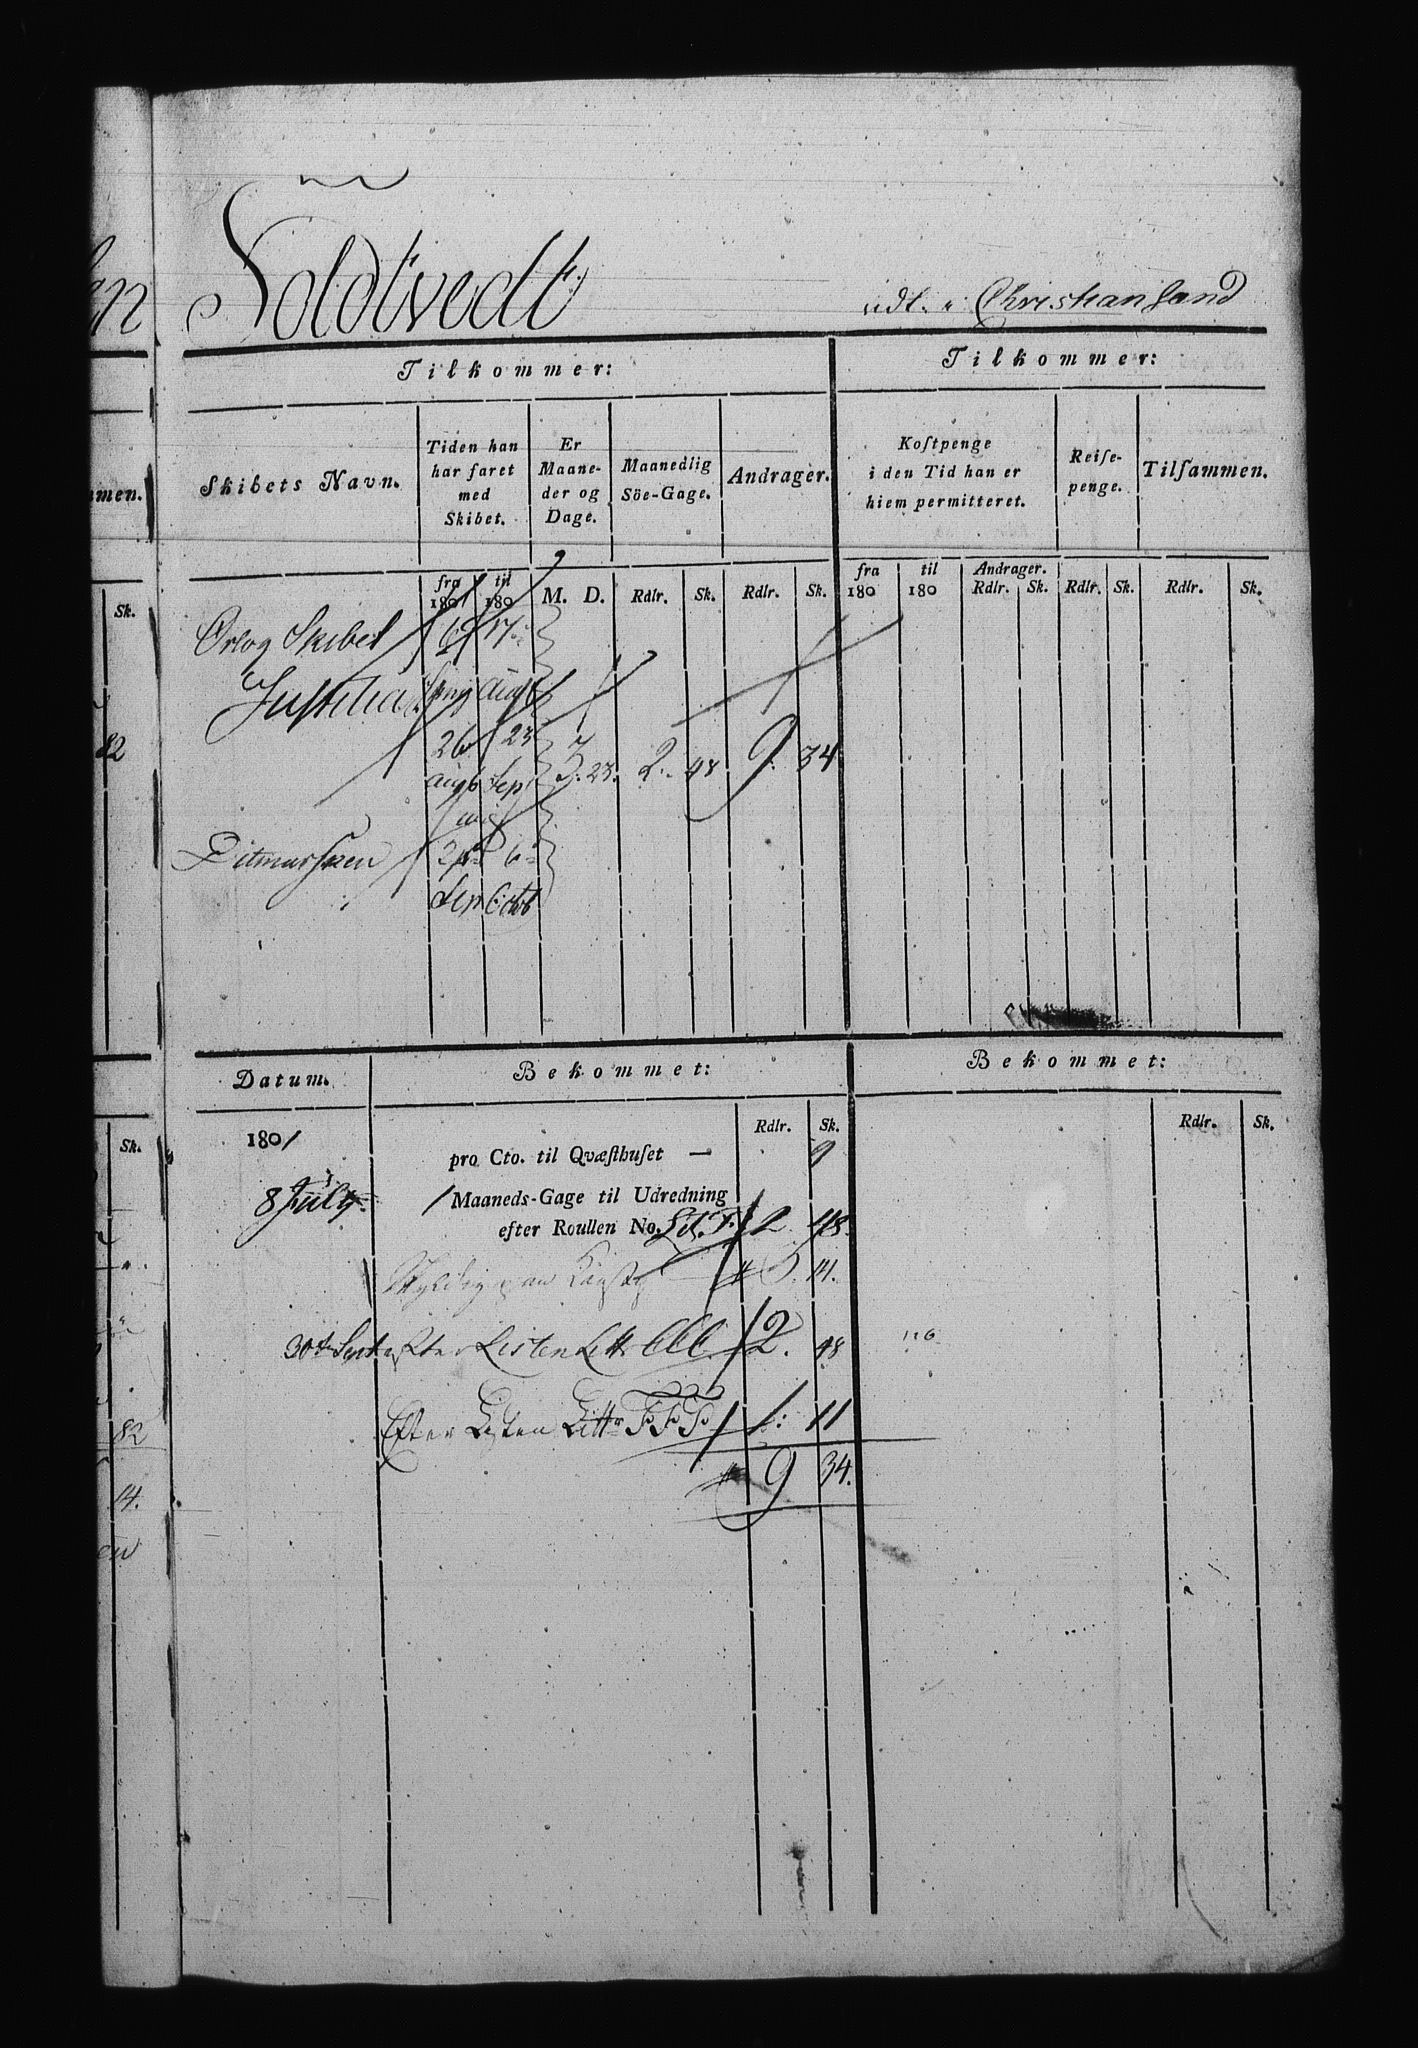 Soldtvedt
udl. a Christiansand
Tilkommer:
Tilkommer:
Skibets Navn.
Tiden han har faret med Skibet.
Er Maaneder og Dage.
Maanedlig Söe-Gage.
Andrager.
Koſtpenge i den Tid han er hiem permitteret.
Reiſepenge.
Tilſammen.
fra 1801
til 180
M. D.
Rdlr. Sk.
Rdlr. Sk.
fra 180
til 180
Andrager. Rdlr. Sk.
Rdlr. Sk.
Rdlr. Sk.
Orlog Skibet
6 17
Justitia
Juny Aug
26 23
Aug Sep
3. 23. 2. 48 9. 34
Ditmarsken
24 6
Sep Octb
Datum.
Bekommet:
Bekommet:
Rdlr. Sk.
Rdlr. Sk.
1801
pro Cto. til Qvæſthuſet — 9
8 July
1 Maaneds-Gage til Udredning
efter Roullen No. Lit. F. 2 48.
3. 14.
30te Sept efter Listen Littr CCC 2. 48
Efter Listen Littr FFF 1: 11
9 34.
mmen.
Sk.
82
Sk.
82
14.